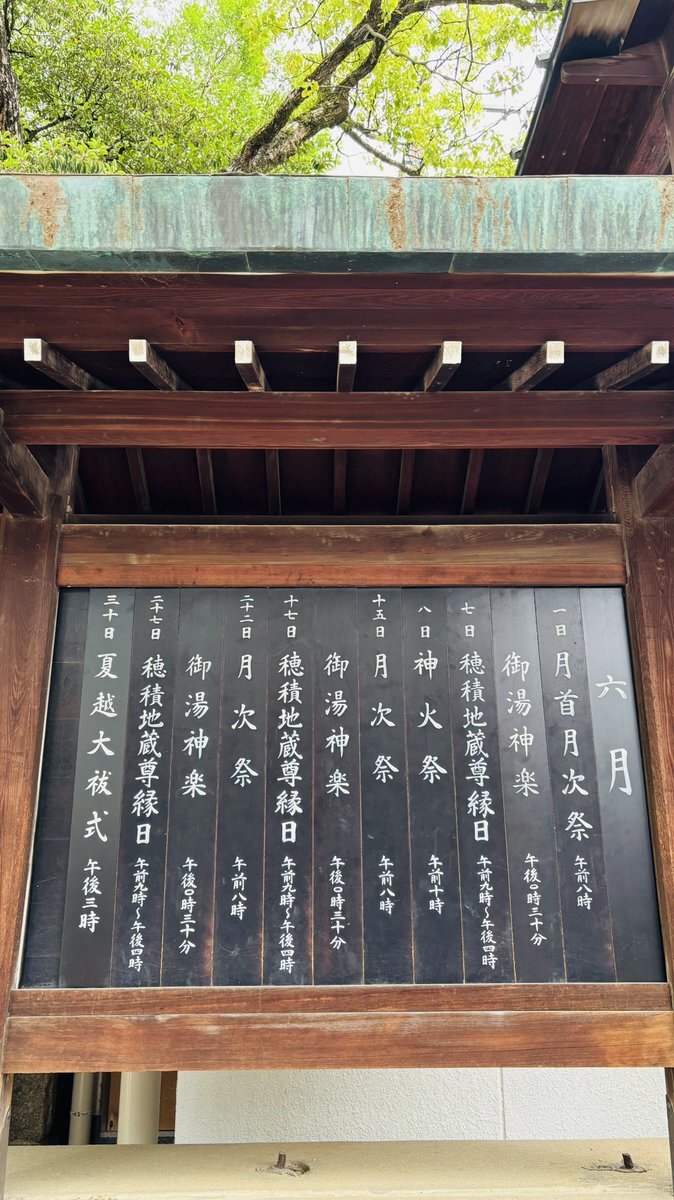 六月
一日 月首月次祭 午前八時
御湯神楽 午後〇時三十分
七日 穂積地蔵尊縁日 午前九時～午後四時
八日 神火祭 午前十時
十五日 月次祭 午前八時
御湯神楽 午後〇時三十分
十七日 穂積地蔵尊縁日 午前九時～午後四時
二十二日 月次祭 午前八時
御湯神楽 午後〇時三十分
二十七日 穂積地蔵尊縁日 午前九時～午後四時
三十日 夏越大祓式 午後三時